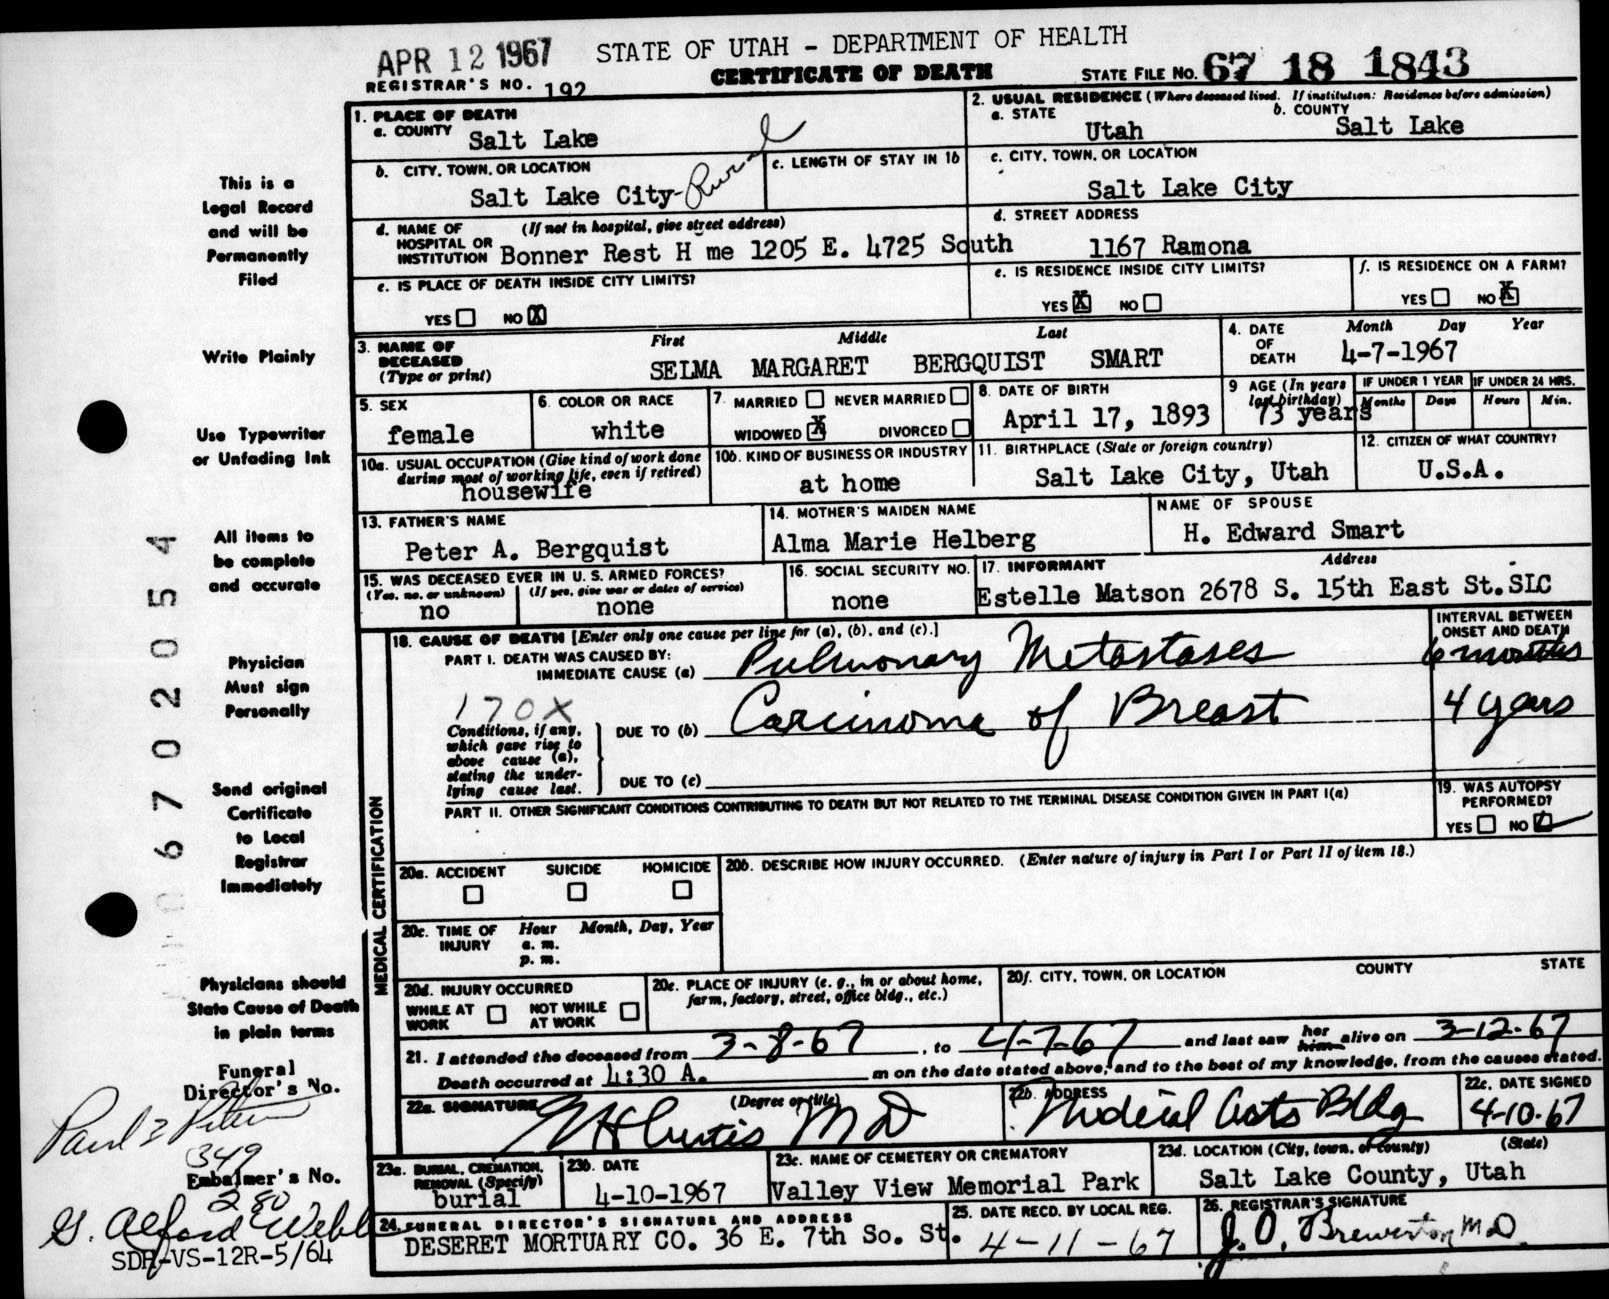 APR 12 1967 STATE OF UTAH - DEPARTMENT OF HEALTH
REGISTRAR'S NO. 192 CERTIFICATE OF DEATH STATE FILE NO. 67 18 1843
1. PLACE OF DEATH
a. COUNTY Salt Lake
2. USUAL RESIDENCE (Where deceased lived. If institution: Residence before admission)
a. STATE Utah b. COUNTY Salt Lake
b. CITY, TOWN, OR LOCATION Salt Lake City-Rural
c. LENGTH OF STAY IN 1b
c. CITY, TOWN, OR LOCATION
Salt Lake City
d. NAME OF HOSPITAL OR INSTITUTION (If not in hospital, give street address)
Bonner Rest H me 1205 E. 4725 South
d. STREET ADDRESS
1167 Ramona
e. IS PLACE OF DEATH INSIDE CITY LIMITS?
YES NO X
e. IS RESIDENCE INSIDE CITY LIMITS?
YES X NO
f. IS RESIDENCE ON A FARM?
YES NO X
3. NAME OF DECEASED (Type or print)
First Middle Last
SELMA MARGARET BERGQUIST SMART
4. DATE OF DEATH Month Day Year
4-7-1967
5. SEX
female
6. COLOR OR RACE
white
7. MARRIED NEVER MARRIED
WIDOWED X DIVORCED
8. DATE OF BIRTH
April 17, 1893
9 AGE (In years last birthday)
73 years
IF UNDER 1 YEAR
Months Days
IF UNDER 24 HRS.
Hours Min.
10a. USUAL OCCUPATION (Give kind of work done during most of working life, even if retired)
housewife
10b. KIND OF BUSINESS OR INDUSTRY
at home
11. BIRTHPLACE (State or foreign country)
Salt Lake City, Utah
12. CITIZEN OF WHAT COUNTRY?
U.S.A.
13. FATHER'S NAME
Peter A. Bergquist
14. MOTHER'S MAIDEN NAME
Alma Marie Helberg
NAME OF SPOUSE
H. Edward Smart
15. WAS DECEASED EVER IN U. S. ARMED FORCES?
(Yes, no, or unknown) (If yes, give war or dates of service)
no none
16. SOCIAL SECURITY NO.
none
17. INFORMANT Address
Estelle Matson 2678 S. 15th East St.SLC
MEDICAL CERTIFICATION
18. CAUSE OF DEATH [Enter only one cause per line for (a), (b), and (c).]
INTERVAL BETWEEN ONSET AND DEATH
PART I. DEATH WAS CAUSED BY:
IMMEDIATE CAUSE (a) Pulmonary Metastases 6 months
170X
Conditions, if any, which gave rise to above cause (a), stating the underlying cause last.
DUE TO (b) Carcinoma of Breast 4 years
DUE TO (c)
PART II. OTHER SIGNIFICANT CONDITIONS CONTRIBUTING TO DEATH BUT NOT RELATED TO THE TERMINAL DISEASE CONDITION GIVEN IN PART I(a)
19. WAS AUTOPSY PERFORMED?
YES NO
20a. ACCIDENT SUICIDE HOMICIDE
20b. DESCRIBE HOW INJURY OCCURRED. (Enter nature of injury in Part I or Part II of item 18.)
20c. TIME OF INJURY Hour Month, Day, Year
a. m.
p. m.
20d. INJURY OCCURRED
WHILE AT WORK NOT WHILE AT WORK
20e. PLACE OF INJURY (e. g., in or about home, farm, factory, street, office bldg., etc.)
20f. CITY, TOWN, OR LOCATION COUNTY STATE
21. I attended the deceased from 3-8-67, to 4-7-67 and last saw her him alive on 3-12-67
Death occurred at 4:30 A. m on the date stated above; and to the best of my knowledge, from the causes stated.
22a. SIGNATURE (Degree or title)
Curtis MD
22b. ADDRESS
Medical Arts Bldg
22c. DATE SIGNED
4-10-67
23a. BURIAL, CREMATION, REMOVAL (Specify)
burial
23b. DATE
4-10-1967
23c. NAME OF CEMETERY OR CREMATORY
Valley View Memorial Park
23d. LOCATION (City, town, or county) (State)
Salt Lake County, Utah
24. FUNERAL DIRECTOR'S SIGNATURE AND ADDRESS
DESERET MORTUARY CO. 36 E. 7th So. St.
25. DATE RECD. BY LOCAL REG.
4-11-67
26. REGISTRAR'S SIGNATURE
J. O. Brewerton MD.
This is a
Legal Record
and will be
Permanently
Filed
Write Plainly
Use Typewriter
or Unfading Ink
All items to
be complete
and accurate
Physician
Must sign
Personally
Send original
Certificate
to Local
Registrar
Immediately
Physicians should
State Cause of Death
in plain terms
Funeral
Director's No.
349
Embalmer's No.
280
G. Alford Webb
SDH-VS-12R-5/64
0 6 7 0 2 0 5 4